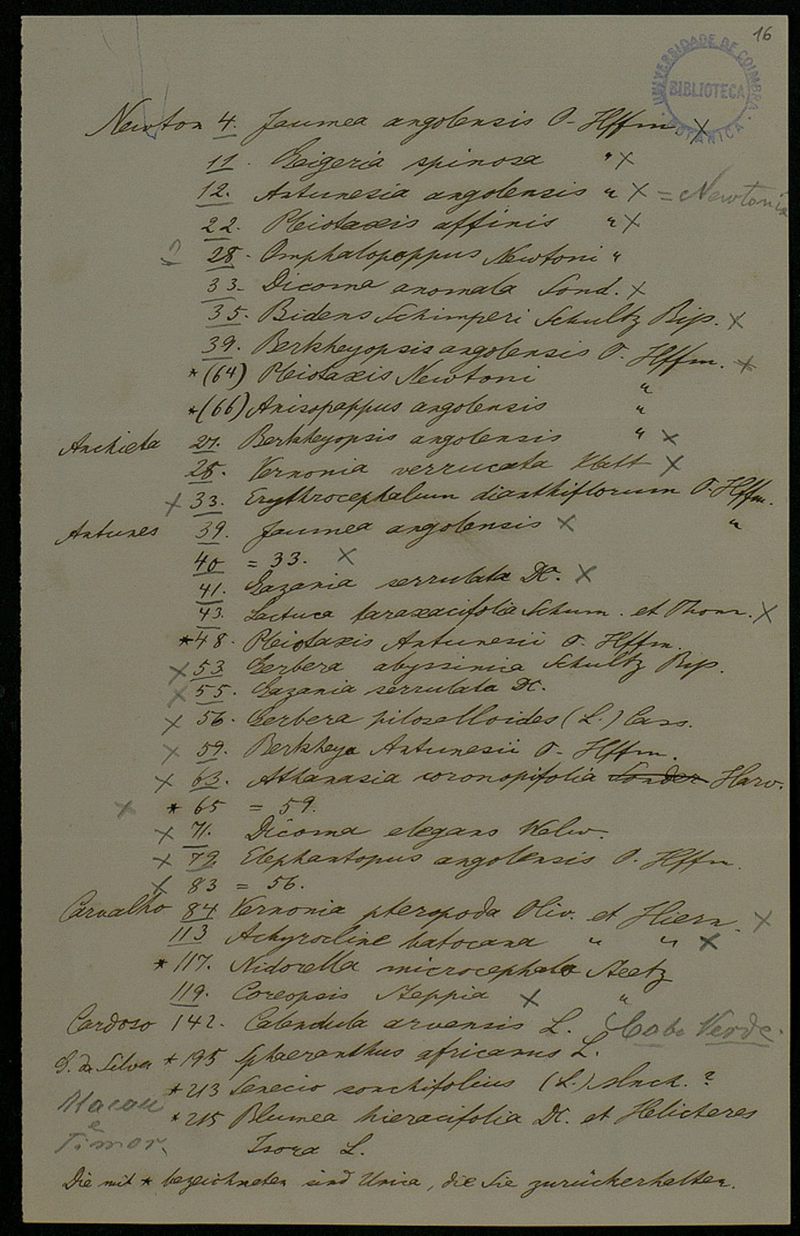 16
UNIVERSIDADE DE COIMBRA
BIBLIOTECA
BOTANICA
Newton 4. Jaumea angolensis O. Hffm X
11. Geigeria spinosa " X
12. Antunesia angolensis " X = Newtonia
22. Pleiotaxis affinis " X
28. Omphalopappus Newtoni "
33. Dicoma anomala Sond. X
35. Bidens Schimperi Schultz Bip. X
39. Berkheyopsis angolensis O. Hffm. X
*(64) Pleiotaxis Newtoni "
*(66) Anisopappus angolensis "
Anchieta 27. Berkheyopsis angolensis " X
28. Vernonia verrucata Klatt X
X 33. Erythrocephalum dianthiflorum O. Hffm.
Antunes 39. Jaumea angolensis X "
40 = 33. X
41. Gazania serrulata DC. X
43. Lactuca taraxacifolia Schum. et Thonn. X
*48. Pleiotaxis Antunesii O. Hffm.
X 53 Gerbera abyssinica Schultz Bip.
X 55. Gazania serrulata DC.
X 56. Gerbera piloselloides (L.) Cass.
X 59. Berkheya Antunesii O. Hffm.
X 63. Athanasia coronopifolia Sonder Harv.
X * 65 = 59.
X 71. Dicoma elegans Welw.
X 79. Elephantopus angolensis O. Hffm.
X 83 = 56.
Carvalho 84 Vernonia pteropoda Oliv. et Hiern. X
113 Achyrocline batocana " " X
* 117. Nidorella microcephala Steetz
119. Coreopsis Steppia X "
Cardoso 142. Calendula arvensis L. (Cabo Verde.
G. da Silva * 195 Sphaeranthus africanus L.
* 213 Senecio sonchifolius (L.) Mnch. ?
Macau
e
Timor.
* 215 Blumea hieracifolia DC. et Helicteres
Isora L.
Die mit * bezeichneten sind Unica, die Sie zurückerhalten.